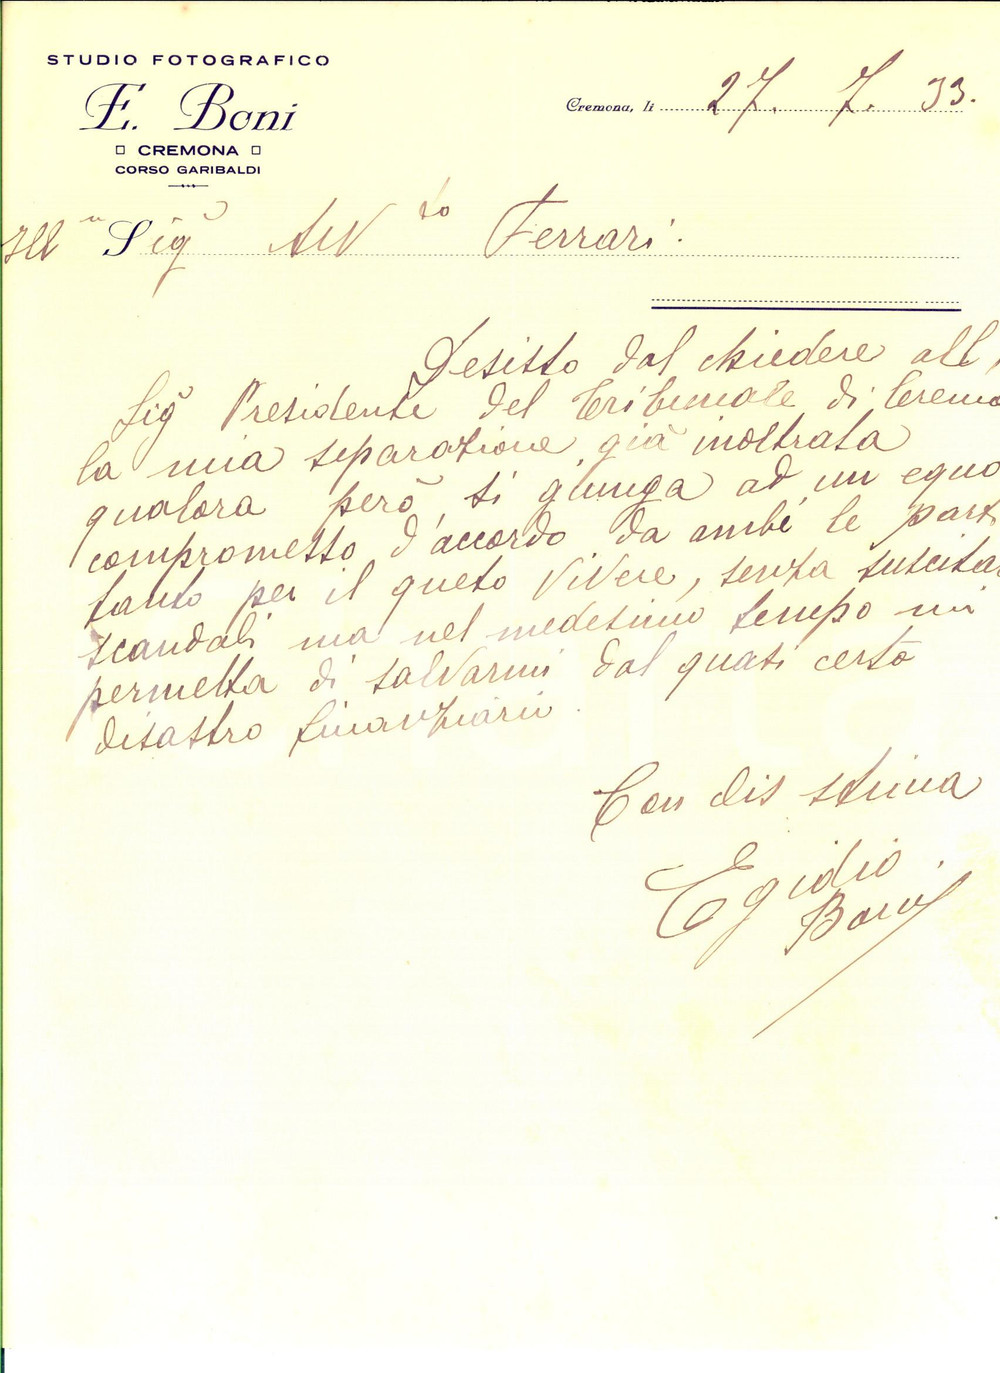 STUDIO FOTOGRAFICO
E. Boni
CREMONA
CORSO GARIBALDI
Cremona, li 27. 7. 33.
Ill Sig Avv to Ferrari.
Desisto dal chiedere all,
Sig Presidente del Tribunale di Cremo
la mia separazione già inoltrata
qualora però si giunga ad un equo
compromesso d'accordo da ambi le part
tanto per il queto vivere, senza suscita
scandali ma nel medesimo tempo mi
permetta di salvarmi dal quasi certo
disastro finanziario.
Con dis stima
Egidio
Boni